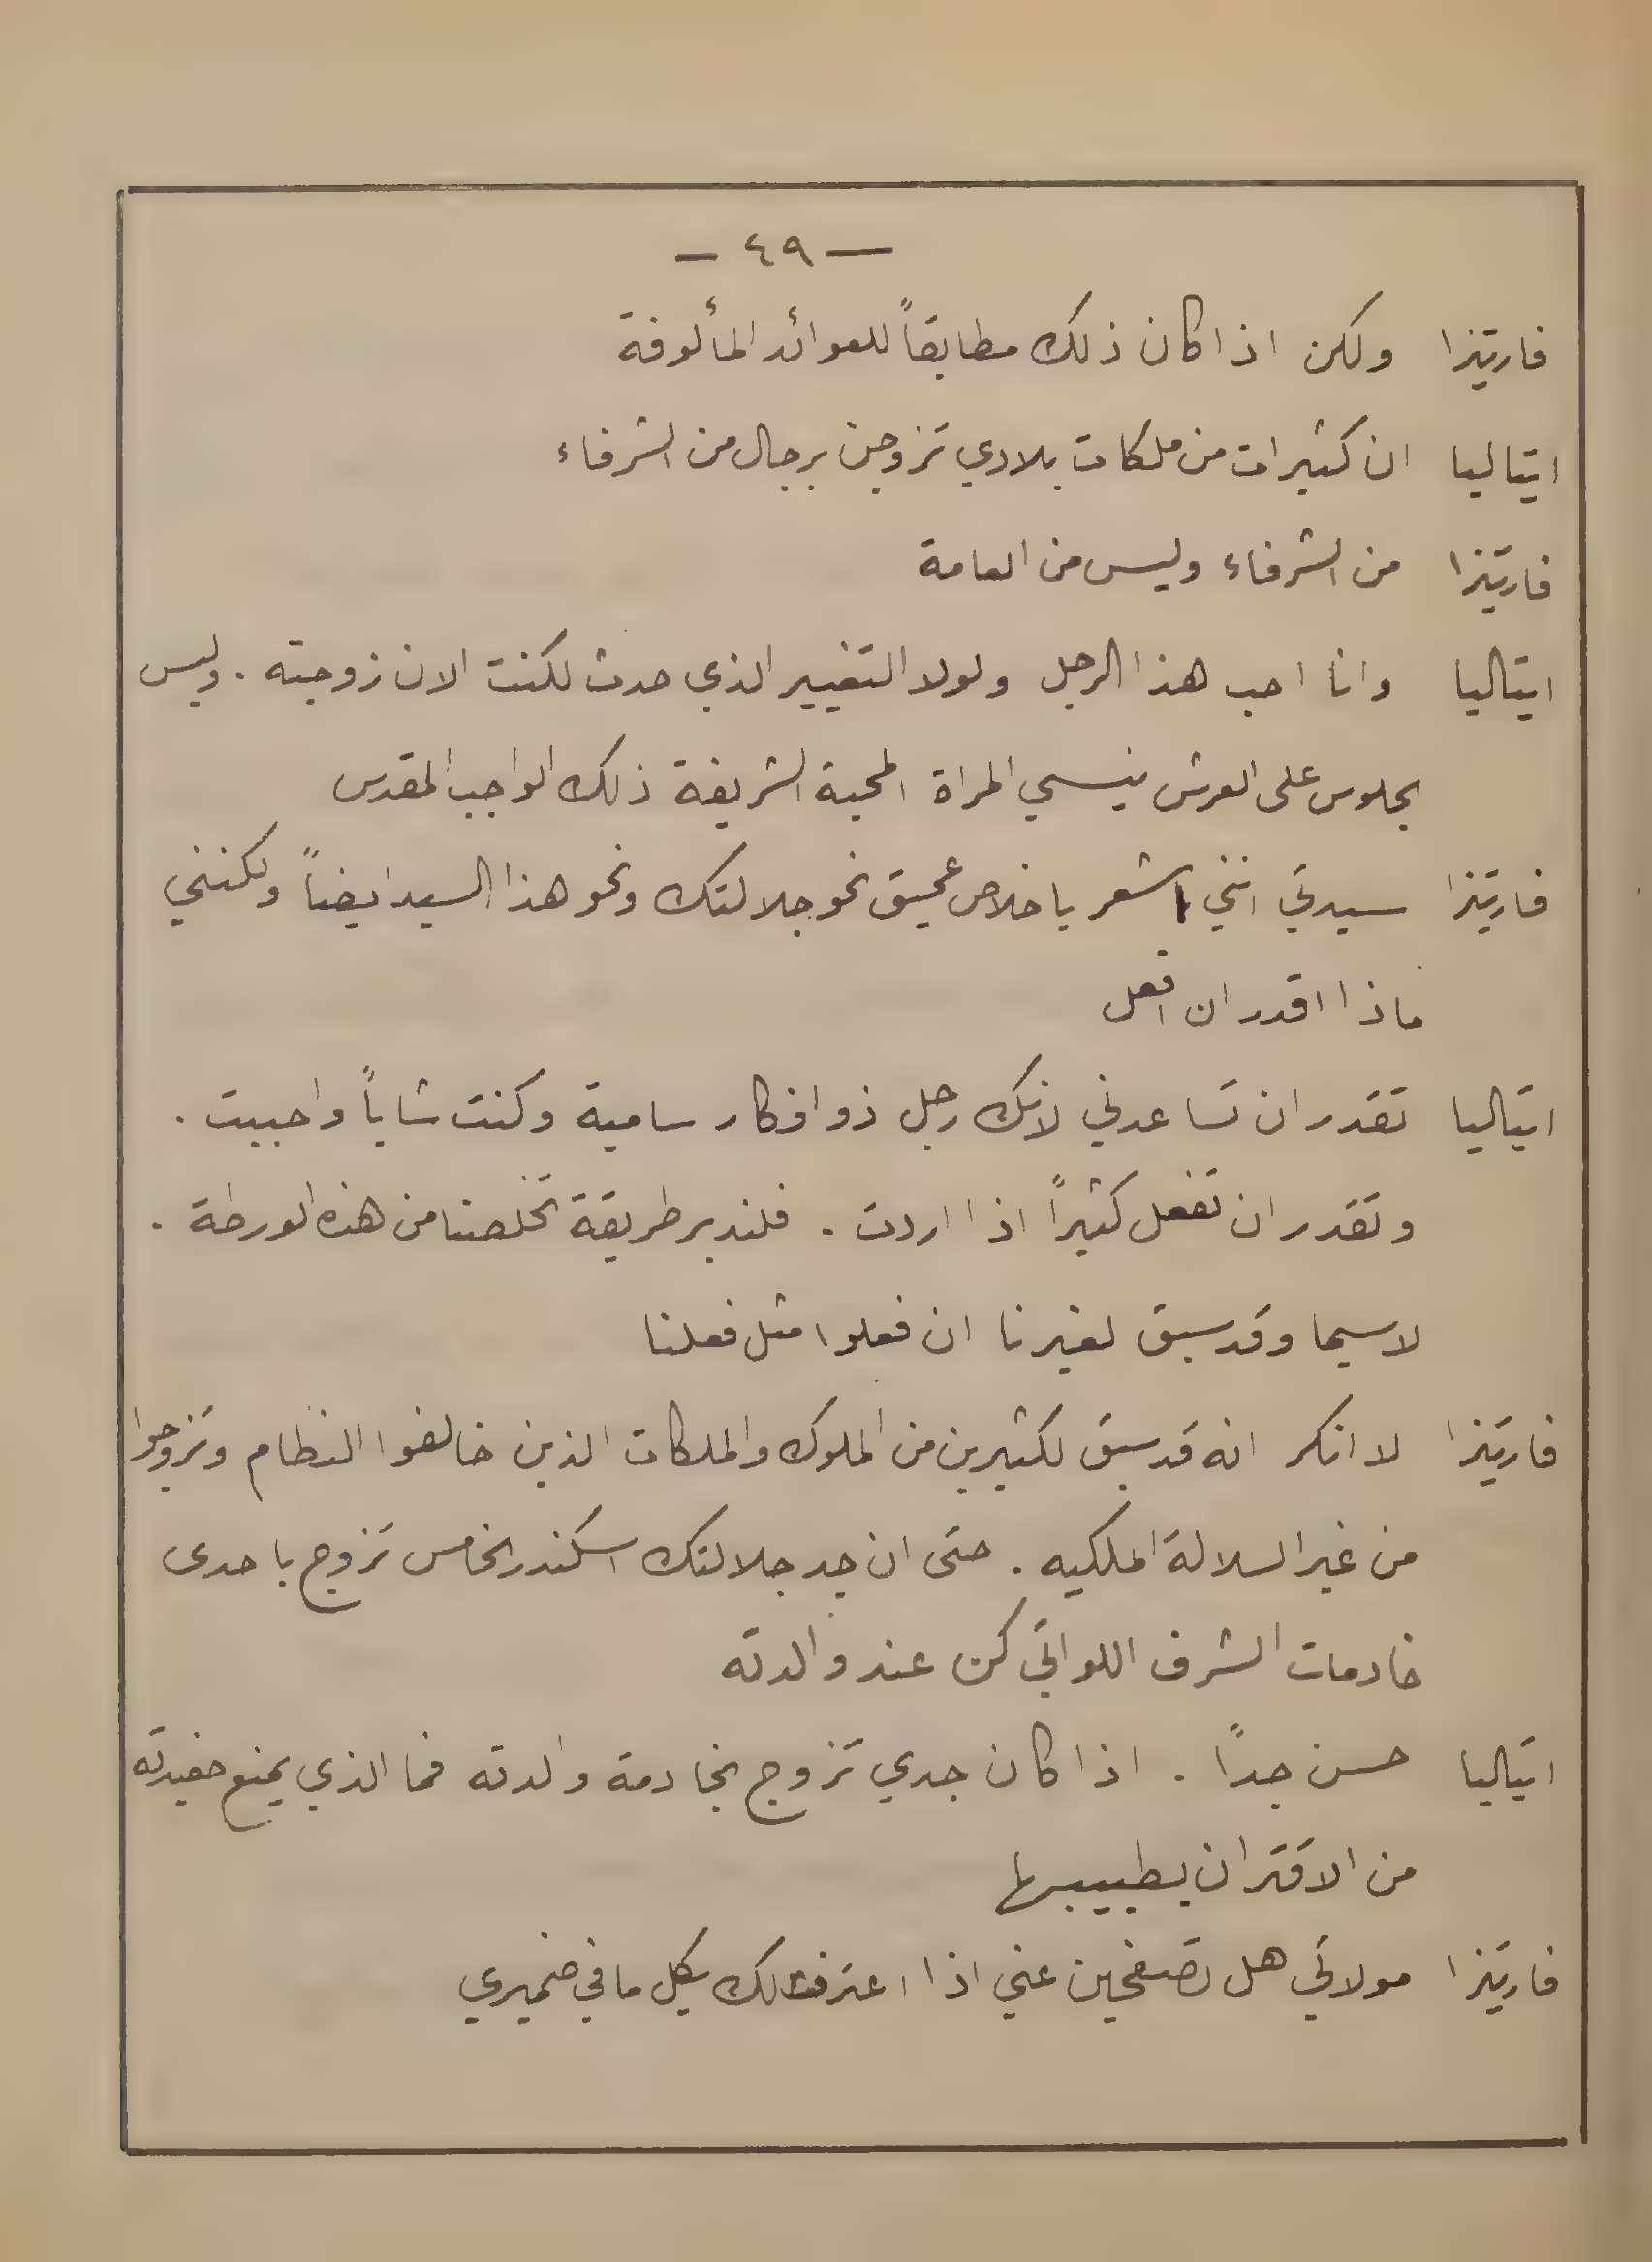 — ٤٩ —
فارتيزا ولكن اذا كان ذلك مطابقاً للعوائد المألوفة
ايتاليا ان كثيرات من ملكات بلادي تزوجن برجال من الشرفاء
فارتيزا من الشرفاء وليس من العامة
ايتاليا وانا احب هذا الرجل ولولا التغيير الذي حدث لكنت الان زوجته . وليس
بجلوس على العرش ينسي المراة المحبة الشريفة ذلك الواجب المقدس
فارتيزا سيدتي انني اشعر باخلاص عميق نحو جلالتك ونحو هذا السيد ايضاً ولكنني
ماذا اقدر ان افعل
ايتاليا تقدر ان تساعدني لانك رجل ذو افكار سامية وكنت شاباً واحببت .
وتقدر ان تفعل كثيراً اذا اردت . فلندبر طريقة تخلصنا من هذه الورطة .
لاسيما وقد سبق لغيرنا ان فعلوا مثل فعلنا
فارتيزا لا انكر انه قد سبق لكثيرين من الملوك والملكات الذين خالفوا النظام وتزوجوا
من غير السلالة الملكيه . حتى ان جد جلالتك اسكندر الخامس تزوج باحدى
خادمات الشرف اللواتي كن عند والدته
ايتاليا حسن جداً . اذا كان جدي تزوج بخادمة والدته فما الذي يمنع حفيدته
من الاقتران بطبيبها
فارتيزا مولاتي هل تصفحين عني اذا اعترفت لك بكل ما في ضميري